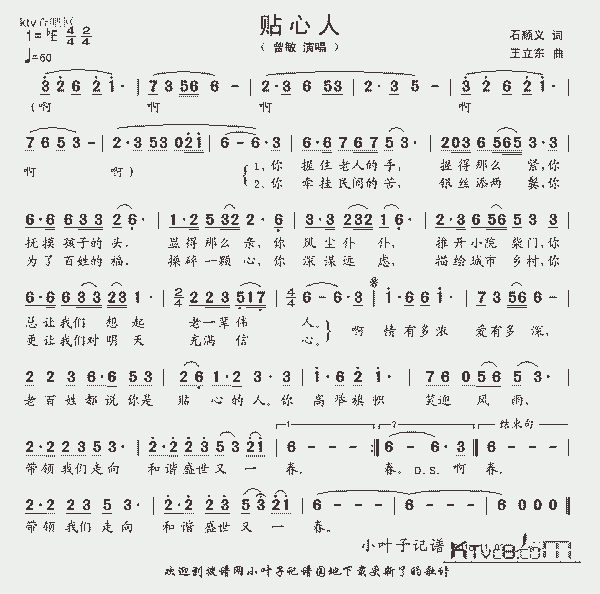 贴心人
（ 曾敏 演唱 ）
1=♭E 4/4 2/4
♩=60
石顺义 词
王立东 曲
3 2 6 2 1· | 7 3 5 6 6 - | 2·3 5 6 2 - | 2·3 5 - | 3 2 6 2 1· |
（啊 啊 啊 啊
7 6 5 3 - | 2·3 5 3 0 2 1 | 6 - 6·3 | 6·6 7 6 7 5· | 2 0 3 6 5 6 5 3·3 |
啊 啊） 1.你 握住老人的手， 握得那么 紧，你
2.你 牵挂民间的苦， 银丝添两 鬓，你
6·6 6 3 3 2 6· | 1·2 5 3 2 2·6 | 3·3 2 3 2 1 6· | 2·3 6 5 6 5 3 3 |
抚摸 孩子的 头， 显得那么 亲，你 风尘 仆 仆， 推开小院 柴门，你
为了 百姓的 福， 操碎一颗 心，你 深谋 远 虑， 描绘城市 乡村，你
6·6 6 3 3 2 3 1· | 2/4 2 2 3 5 1 7 | 4/4 6 - 6·3 | 1·6 6 1· | 7 3 5 6 6 - |
总让我们 想 起 老一辈伟 人。 啊 情有多浓 爱有多 深，
更让我们对 明 天 充满 信 心。
2 2 3 6·6 5 3 | 2 6·1·2 3·3 | 1·6 2 1· | 7 6 0 5 6 5· |
老百姓都说你是 贴 心的人。你 高举旗帜 笑迎 风 雨，
2·2 2 3 5 3· | 2·2 2 3 5 3 2 1 | 6 - - - | 6 - 6·3 | 6 - - - |
1 2 结束句
带领我们走向 和谐盛世又 一 春， 春。D.S. 啊 春，
2·2 2 3 5· | 2·2 2 3 5 3 2 1 | 6 - - - | 6 - - - | 6 0 0 0 ‖
带领我们走向 和谐盛世又 一 春。
小叶子记谱
Ktvc8.com